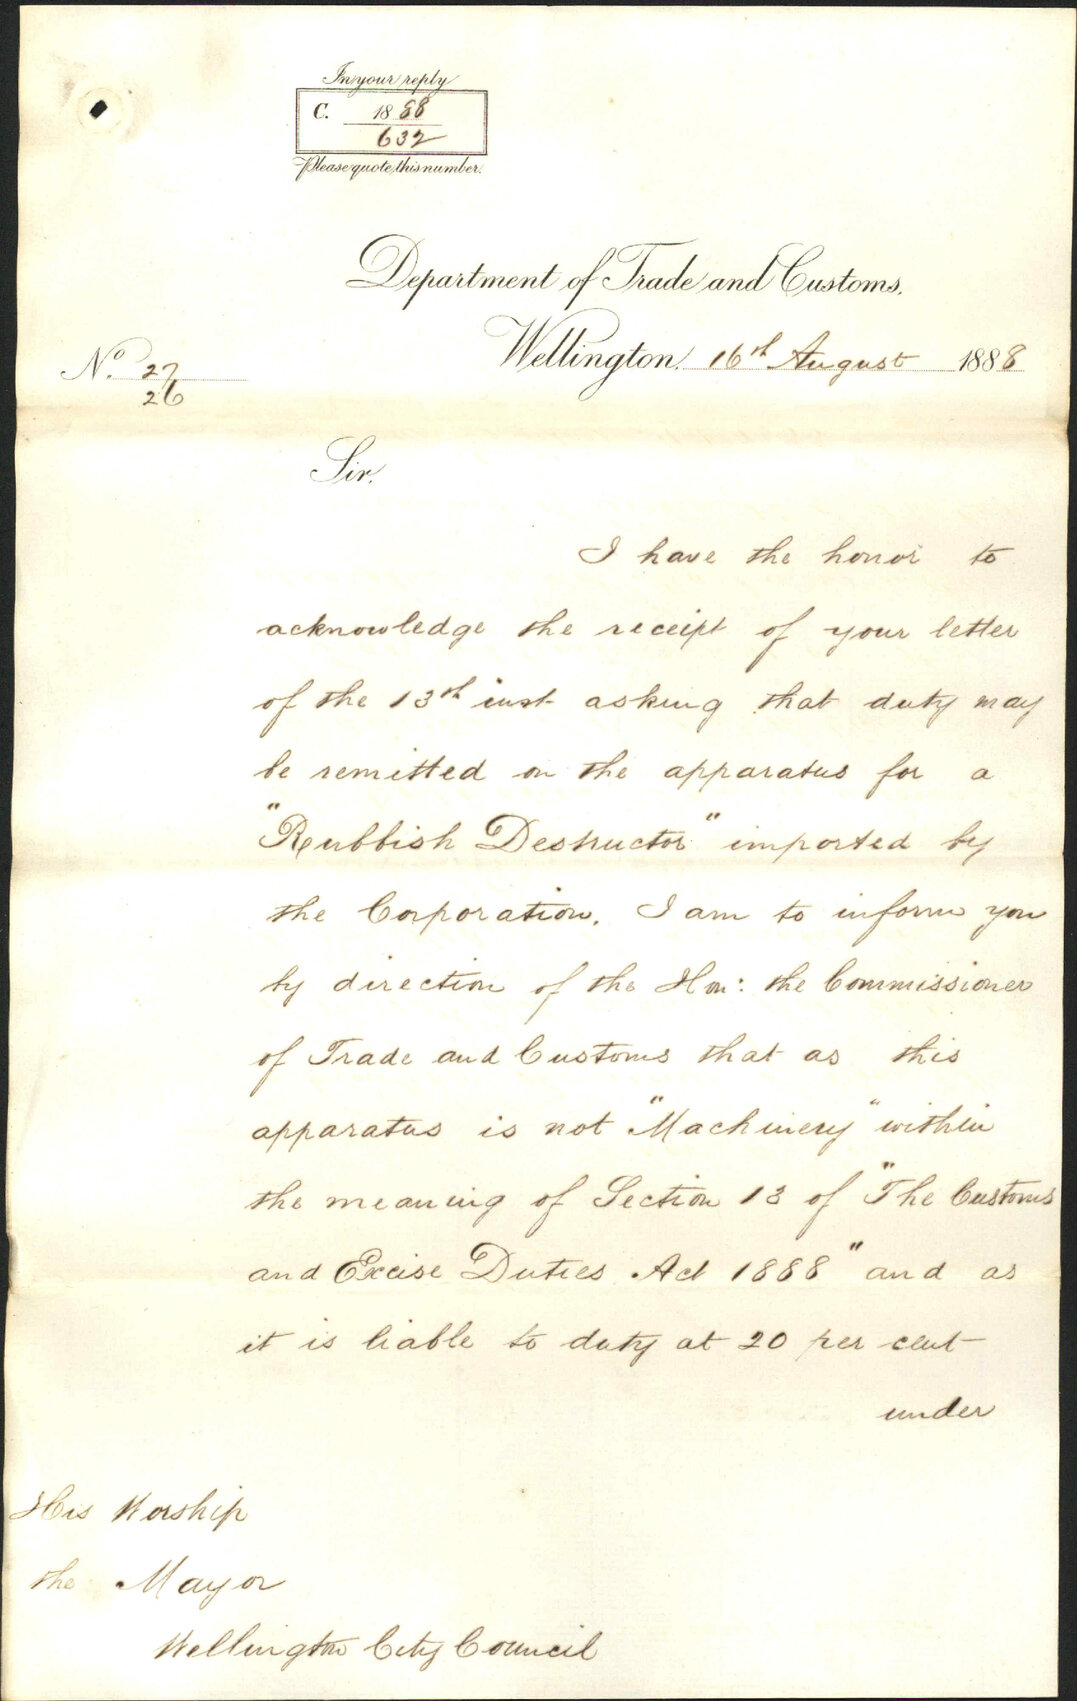 In your reply
C. 1888
632
Please quote this number.
Department of Trade and Customs.
Wellington, 16th August 1888
No. 27
26
Sir,
I have the honor to
acknowledge the receipt of your letter
of the 13th inst asking that duty may
be remitted on the apparatus for a
"Rubbish Destructor" imported by
the Corporation. I am to inform you
by direction of the Hon: the Commissioner
of Trade and Customs that as this
apparatus is not "Machinery" within
the meaning of Section 13 of "The Customs
and Excise Duties Act 1888" and as
it is liable to duty at 20 per cent
under
His Worship
the Mayor
Wellington City Council